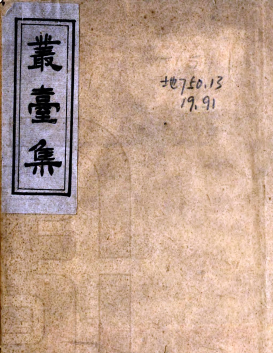 叢臺集
地750.13
19.91